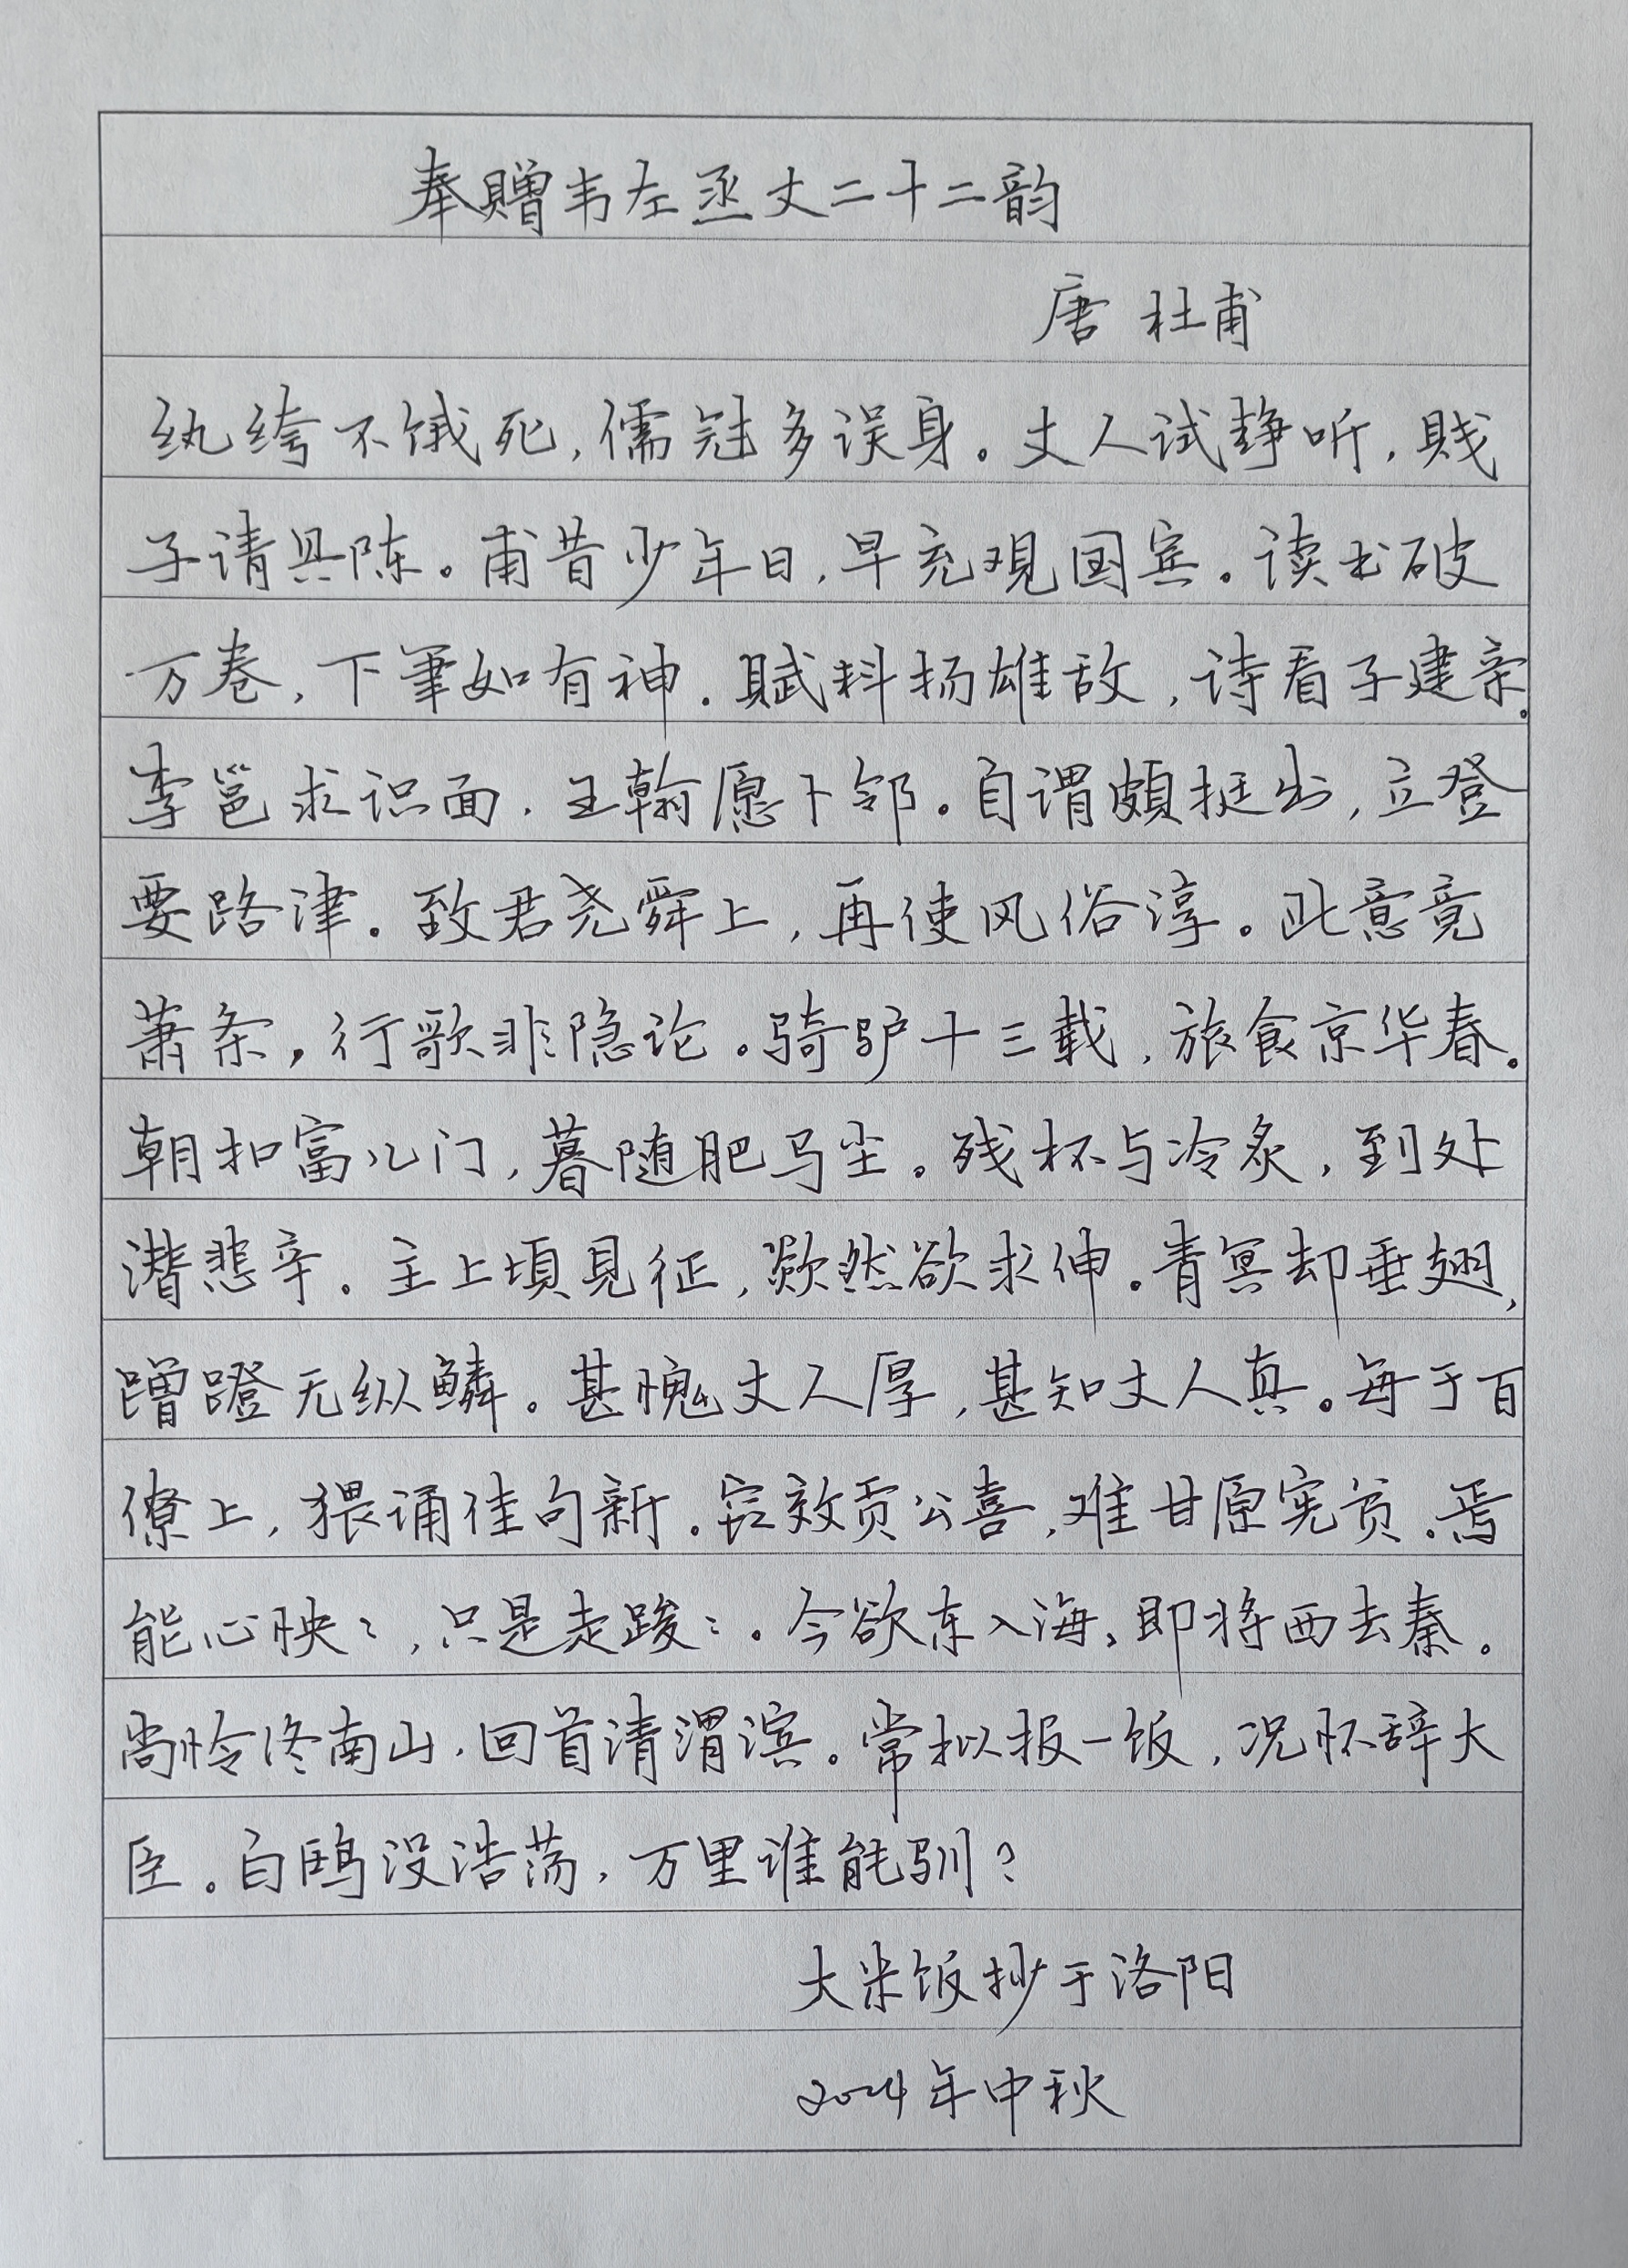 奉贈韦左丞丈二十二韵
唐 杜甫
纨绔不饿死，儒冠多误身。丈人试静听，賎
子请具陈。甫昔少年日，早充观国宾。读书破
万卷，下筆如有神。賦料扬雄敌，诗看子建亲。
李邕求识面，王翰愿卜邻。自谓頗挺出，立登
要路津。致君尧舜上，再使风俗淳。此意竟
萧条，行歌非隐论。骑驴十三载，旅食京华春。
朝扣富儿门，暮随肥马尘。残杯与冷炙，到处
潜悲辛。主上頃見征，欻然欲求伸。青冥却垂翅，
蹭蹬无纵鳞。甚愧丈人厚，甚知丈人真。每于百
僚上，猥诵佳句新。窃效贡公喜，难甘原宪贫。焉
能心怏〻，只是走踆〻。今欲东入海，即将西去秦。
尚怜终南山，回首清渭滨。常拟报一饭，况怀辞大
臣。白鸥没浩荡，万里谁能驯？
大米饭抄于洛阳
2024年中秋